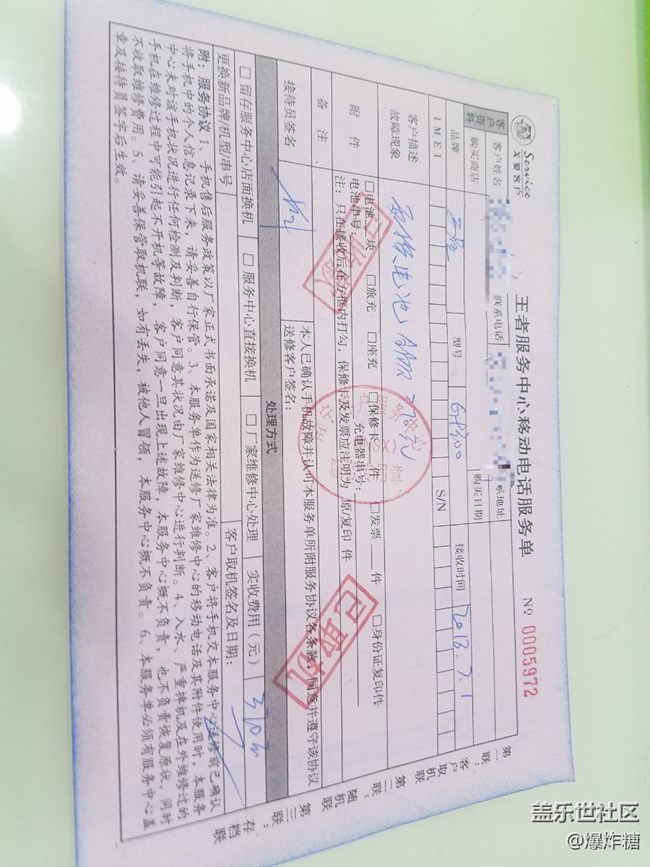 Service
关爱客户
王者服务中心移动电话服务单
Nº 0005972
客户资料
客户姓名
联系电话
联系地址
购买商店
购买日期
品牌
三星
型号
接收时间
2018.7.1
IMEI
S/N
客户描述
故障现象
附件
□电池 块 □旅充 □座充 □保修卡 件 □发票 件 □身份证复印件
电池串号: 充电器串号:
注: 只在接收后在方框内打勾, 保修卡及发票应注明为 原/复印 件
备注
本人已确认手机故障并认可本服务单所附服务协议各条款, 同意并遵守该协议
接待员签名
送修客户签名:
处理方式
□ 留存服务中心店面换机 □ 服务中心直接换机 □ 厂家维修中心处理
实收费用(元)
更换新品牌/机型/串号
客户取机签名及日期:
附: 服务协议 1、手机售后服务政策以厂家正式书面承诺及国家相关法律为准。2、客户将手机交本服务中心送修前已确认
将手机中的个人信息记录下来, 请妥善自行保管。3、本服务单作为送修厂家维修中心的移动电话及其附件使用时, 本服务
中心未对该手机状况进行任何检测及判断, 客户同意其状况由厂家维修中心进行判断。4、入水、严重摔机及在外维修过的
手机在维修过程中可能引起不开机等故障, 客户同意一旦出现上述故障, 本服务中心概不负责, 也不负责恢复原状, 同时
不收取维修费用。5、请妥善保管取机联, 如有丢失, 被他人冒领, 本服务中心概不负责。6、本服务单必须有服务中心盖
章及接待员签字后生效。
第一联: 客户取机联
第二联: 随机联
第三联: 存档联
已取机
盖乐世社区
@爆炸糖